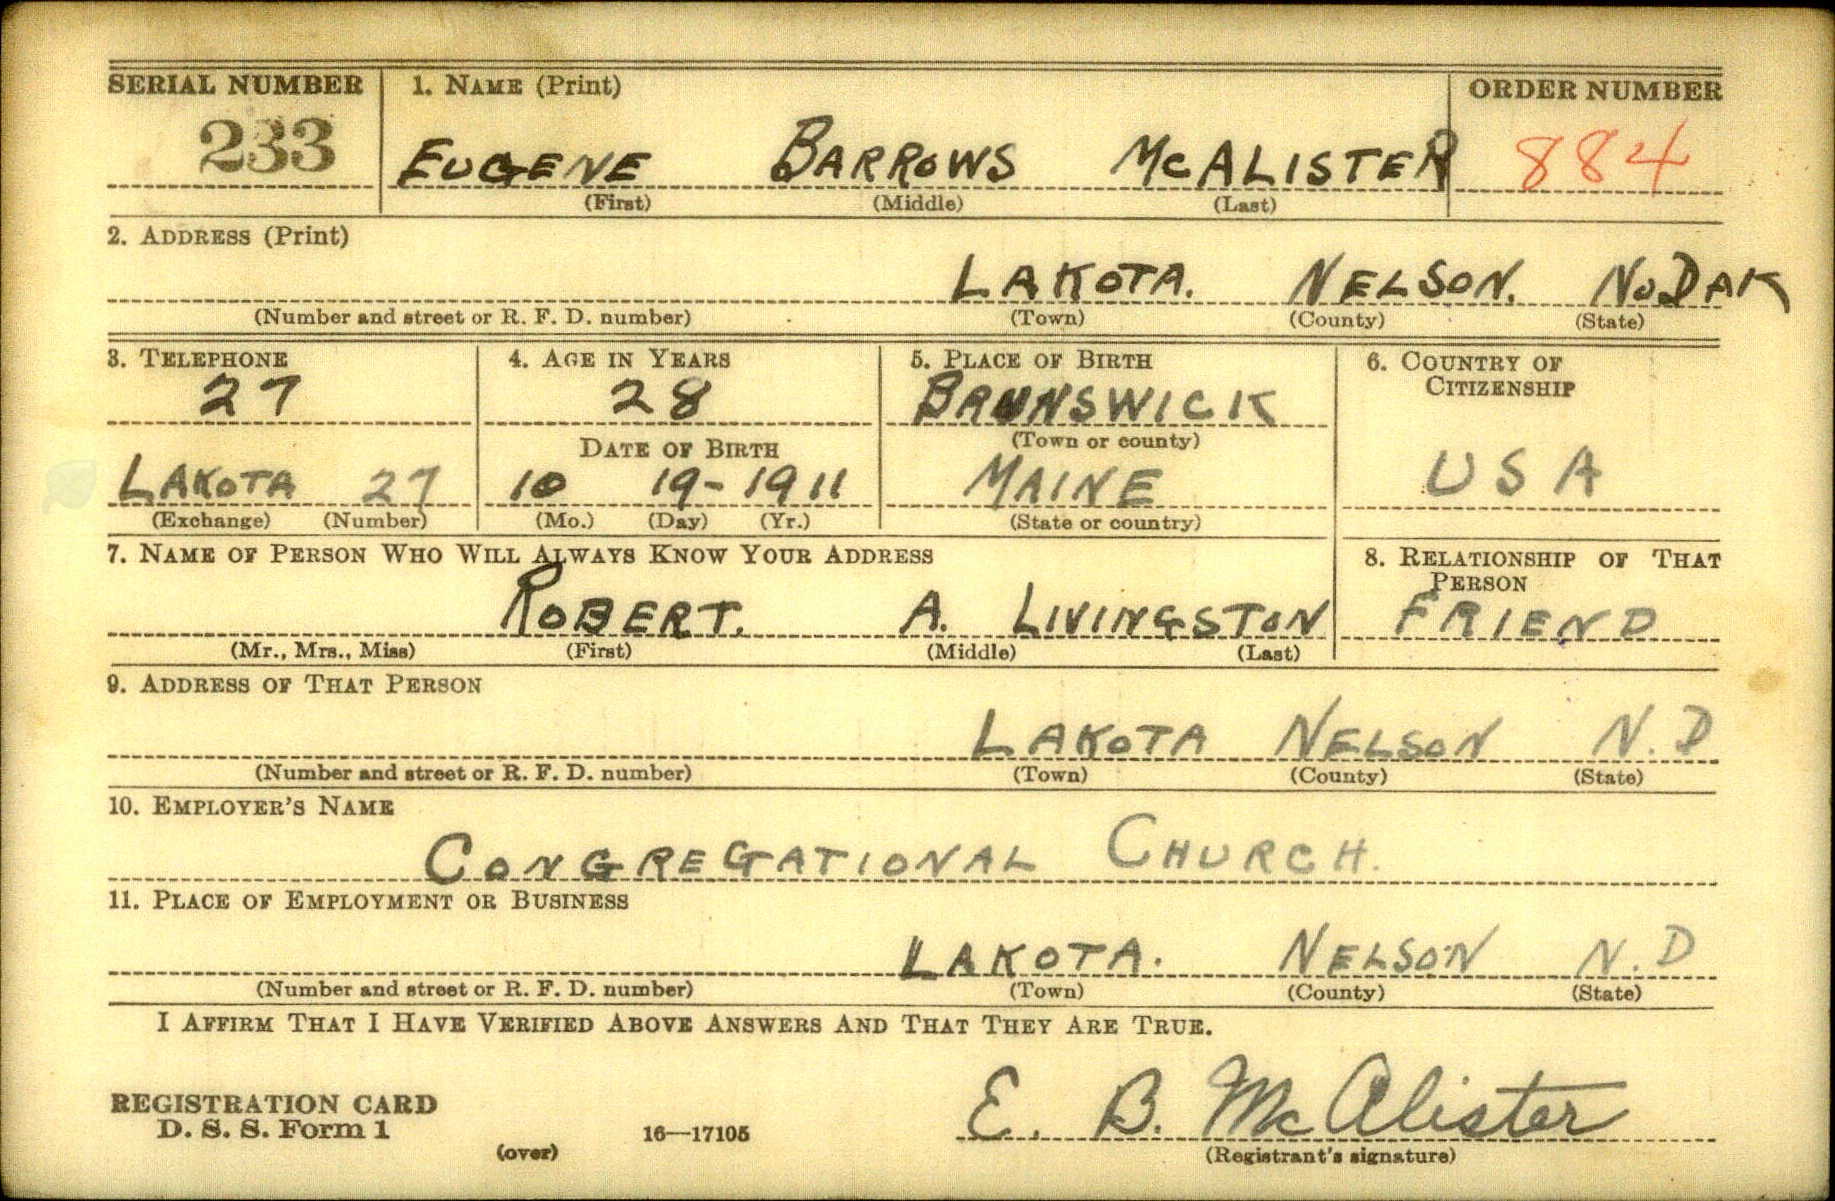 SERIAL NUMBER 1. NAME (Print) ORDER NUMBER
233 EUGENE BARROWS MCALISTER 884
(First) (Middle) (Last)
2. ADDRESS (Print)
LAKOTA. NELSON. NoDAK
(Number and street or R. F. D. number) (Town) (County) (State)
3. TELEPHONE 4. AGE IN YEARS 5. PLACE OF BIRTH 6. COUNTRY OF CITIZENSHIP
27 28 BRUNSWICK
DATE OF BIRTH (Town or county)
LAKOTA 27 10 19-1911 MAINE USA
(Exchange) (Number) (Mo.) (Day) (Yr.) (State or country)
7. NAME OF PERSON WHO WILL ALWAYS KNOW YOUR ADDRESS 8. RELATIONSHIP OF THAT PERSON
ROBERT. A. LIVINGSTON FRIEND
(Mr., Mrs., Miss) (First) (Middle) (Last)
9. ADDRESS OF THAT PERSON
LAKOTA NELSON N.D
(Number and street or R. F. D. number) (Town) (County) (State)
10. EMPLOYER'S NAME
CONGREGATIONAL CHURCH.
11. PLACE OF EMPLOYMENT OR BUSINESS
LAKOTA. NELSON N.D
(Number and street or R. F. D. number) (Town) (County) (State)
I AFFIRM THAT I HAVE VERIFIED ABOVE ANSWERS AND THAT THEY ARE TRUE.
REGISTRATION CARD
D. S. S. Form 1 16—17105 E. B. McAlister
(over) (Registrant's signature)